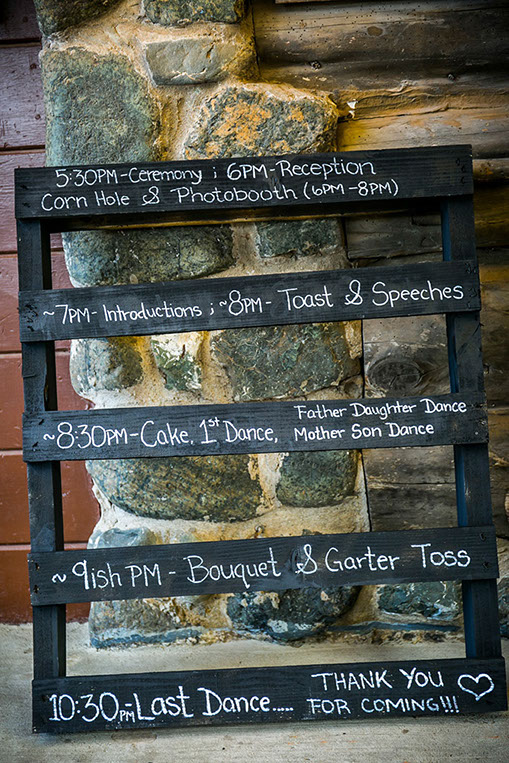 5:30PM-Ceremony ; 6PM-Reception
Corn Hole & Photobooth (6PM-8PM)
~7PM-Introductions ; ~8PM- Toast & Speeches
~8:30PM-Cake, 1st Dance, Father Daughter Dance
Mother Son Dance
~9ish PM - Bouquet & Garter Toss
10:30PM-Last Dance..... THANK YOU
FOR COMING!!!